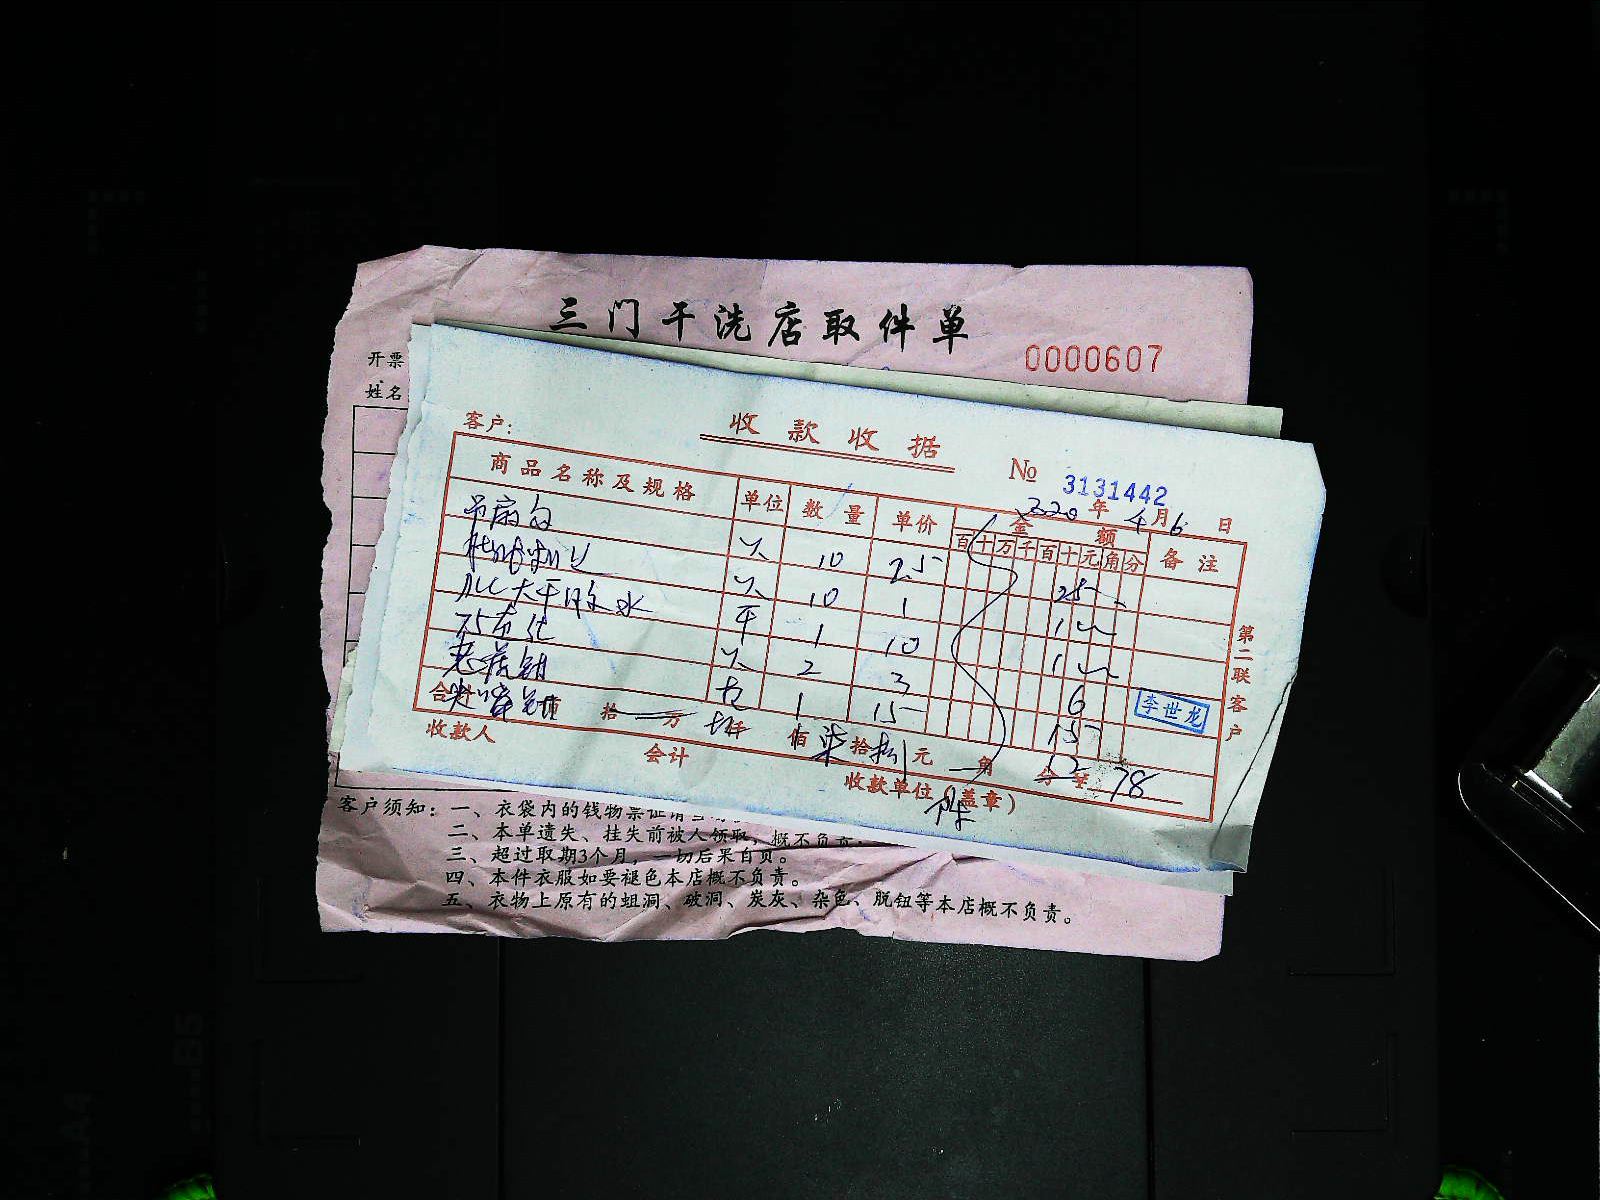 三门干洗店取件单
0000607
开票
姓名
收款收据
客户:
№ 3131442
年 4月6日
商品名称及规格 单位 数量 单价 金额 备注
百十万千百十元角分
吊扇 10 2.5 25
10 1
大干 水 1 10
2 3 6
1 15 15
合计 拾 万 仟 佰 柒拾捌元 角 分 ¥ 78
李世龙
收款人 会计 收款单位(盖章)
第二联客户
客户须知:一、衣袋内的钱物票证请
二、本单遗失、挂失前被人领取,概不负责.
三、超过取期3个月,一切后果自负。
四、本件衣服如要褪色本店概不负责。
五、衣物上原有的蛆洞、破洞、炭灰、杂色、脱钮等本店概不负责。
B5
A4